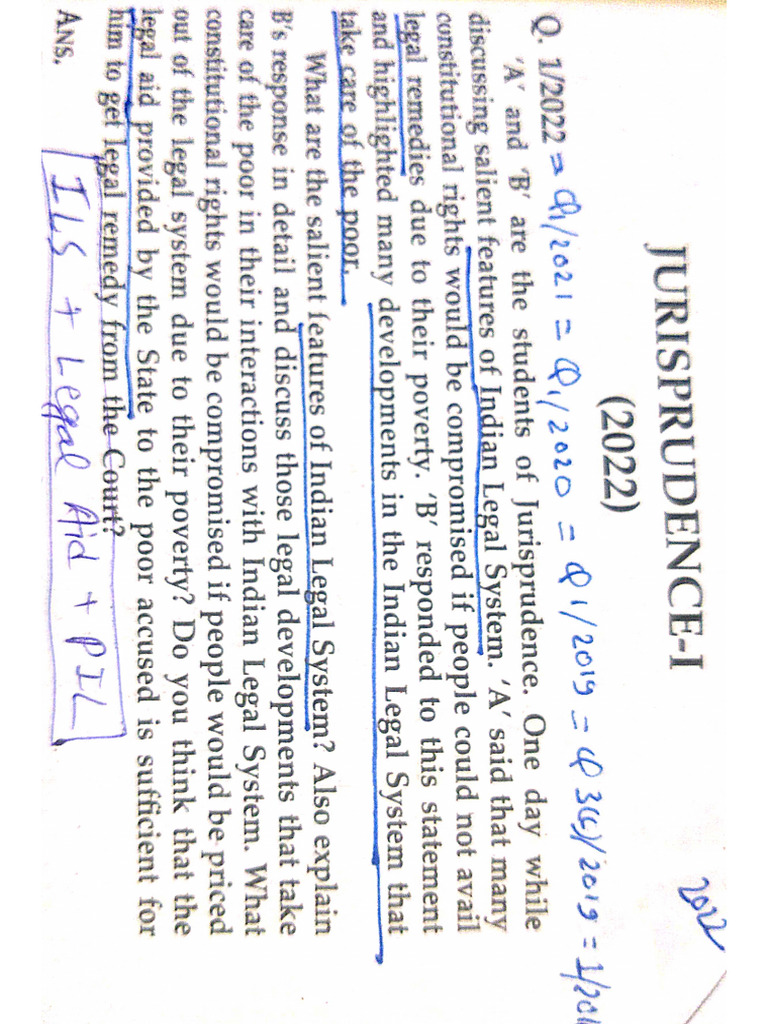 2022
JURISPRUDENCE-I
(2022)
Q. 1/2022 = Q1/2021 = Q1/2020 = Q1/2019 = Q3(a)/2019 = 1/201
'A' and 'B' are the students of Jurisprudence. One day while
discussing salient features of Indian Legal System. 'A' said that many
constitutional rights would be compromised if people could not avail
legal remedies due to their poverty. 'B' responded to this statement
and highlighted many developments in the Indian Legal System that
take care of the poor.
What are the salient features of Indian Legal System? Also explain
B's response in detail and discuss those legal developments that take
care of the poor in their interactions with Indian Legal System. What
constitutional rights would be compromised if people would be priced
out of the legal system due to their poverty? Do you think that the
legal aid provided by the State to the poor accused is sufficient for
him to get legal remedy from the Court?
ANS. ILS + Legal Aid + PIL